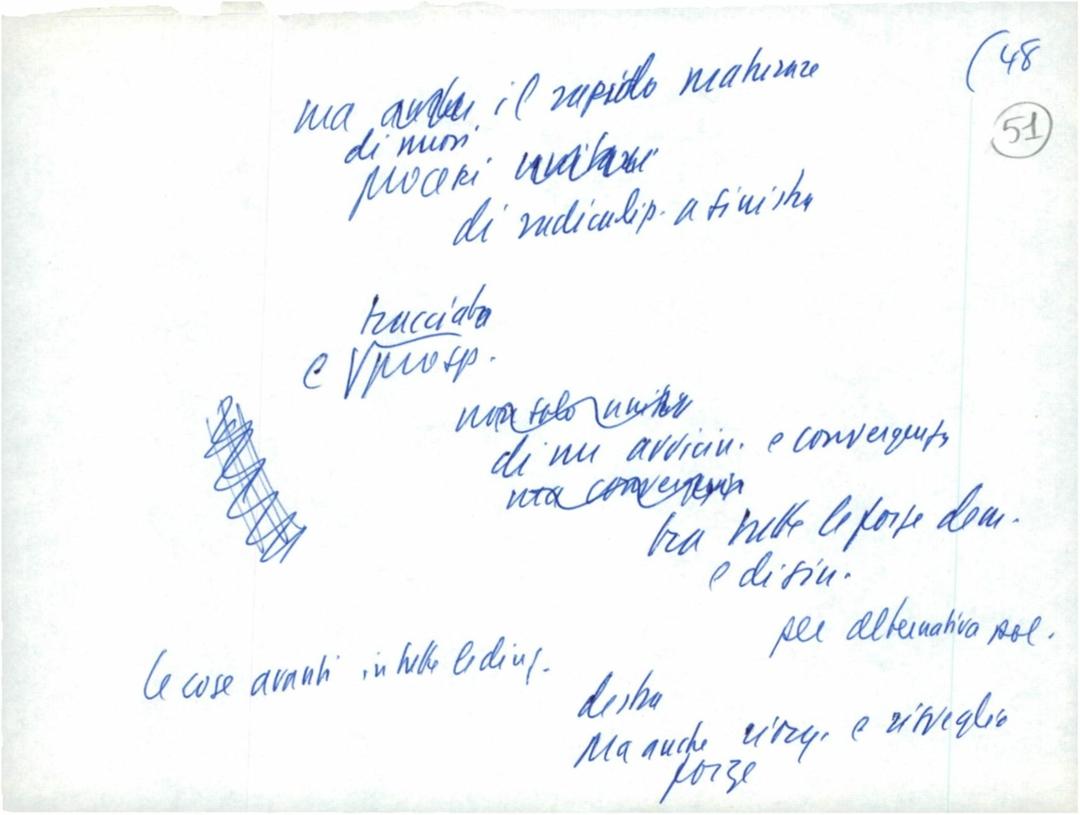 (48
51
ma anche il rapido maturare
di nuovi
processi unitari
di radicalip. a sinistra
tracciata
e V prosp.
non solo unità
di un avvicin. e convergenza
ma convergenza
tra tutte le forze dem.
e di sin.
per alternativa pol.
le cose avanti in tutte le direz.
destra
Ma anche riorg. e risveglio
forze